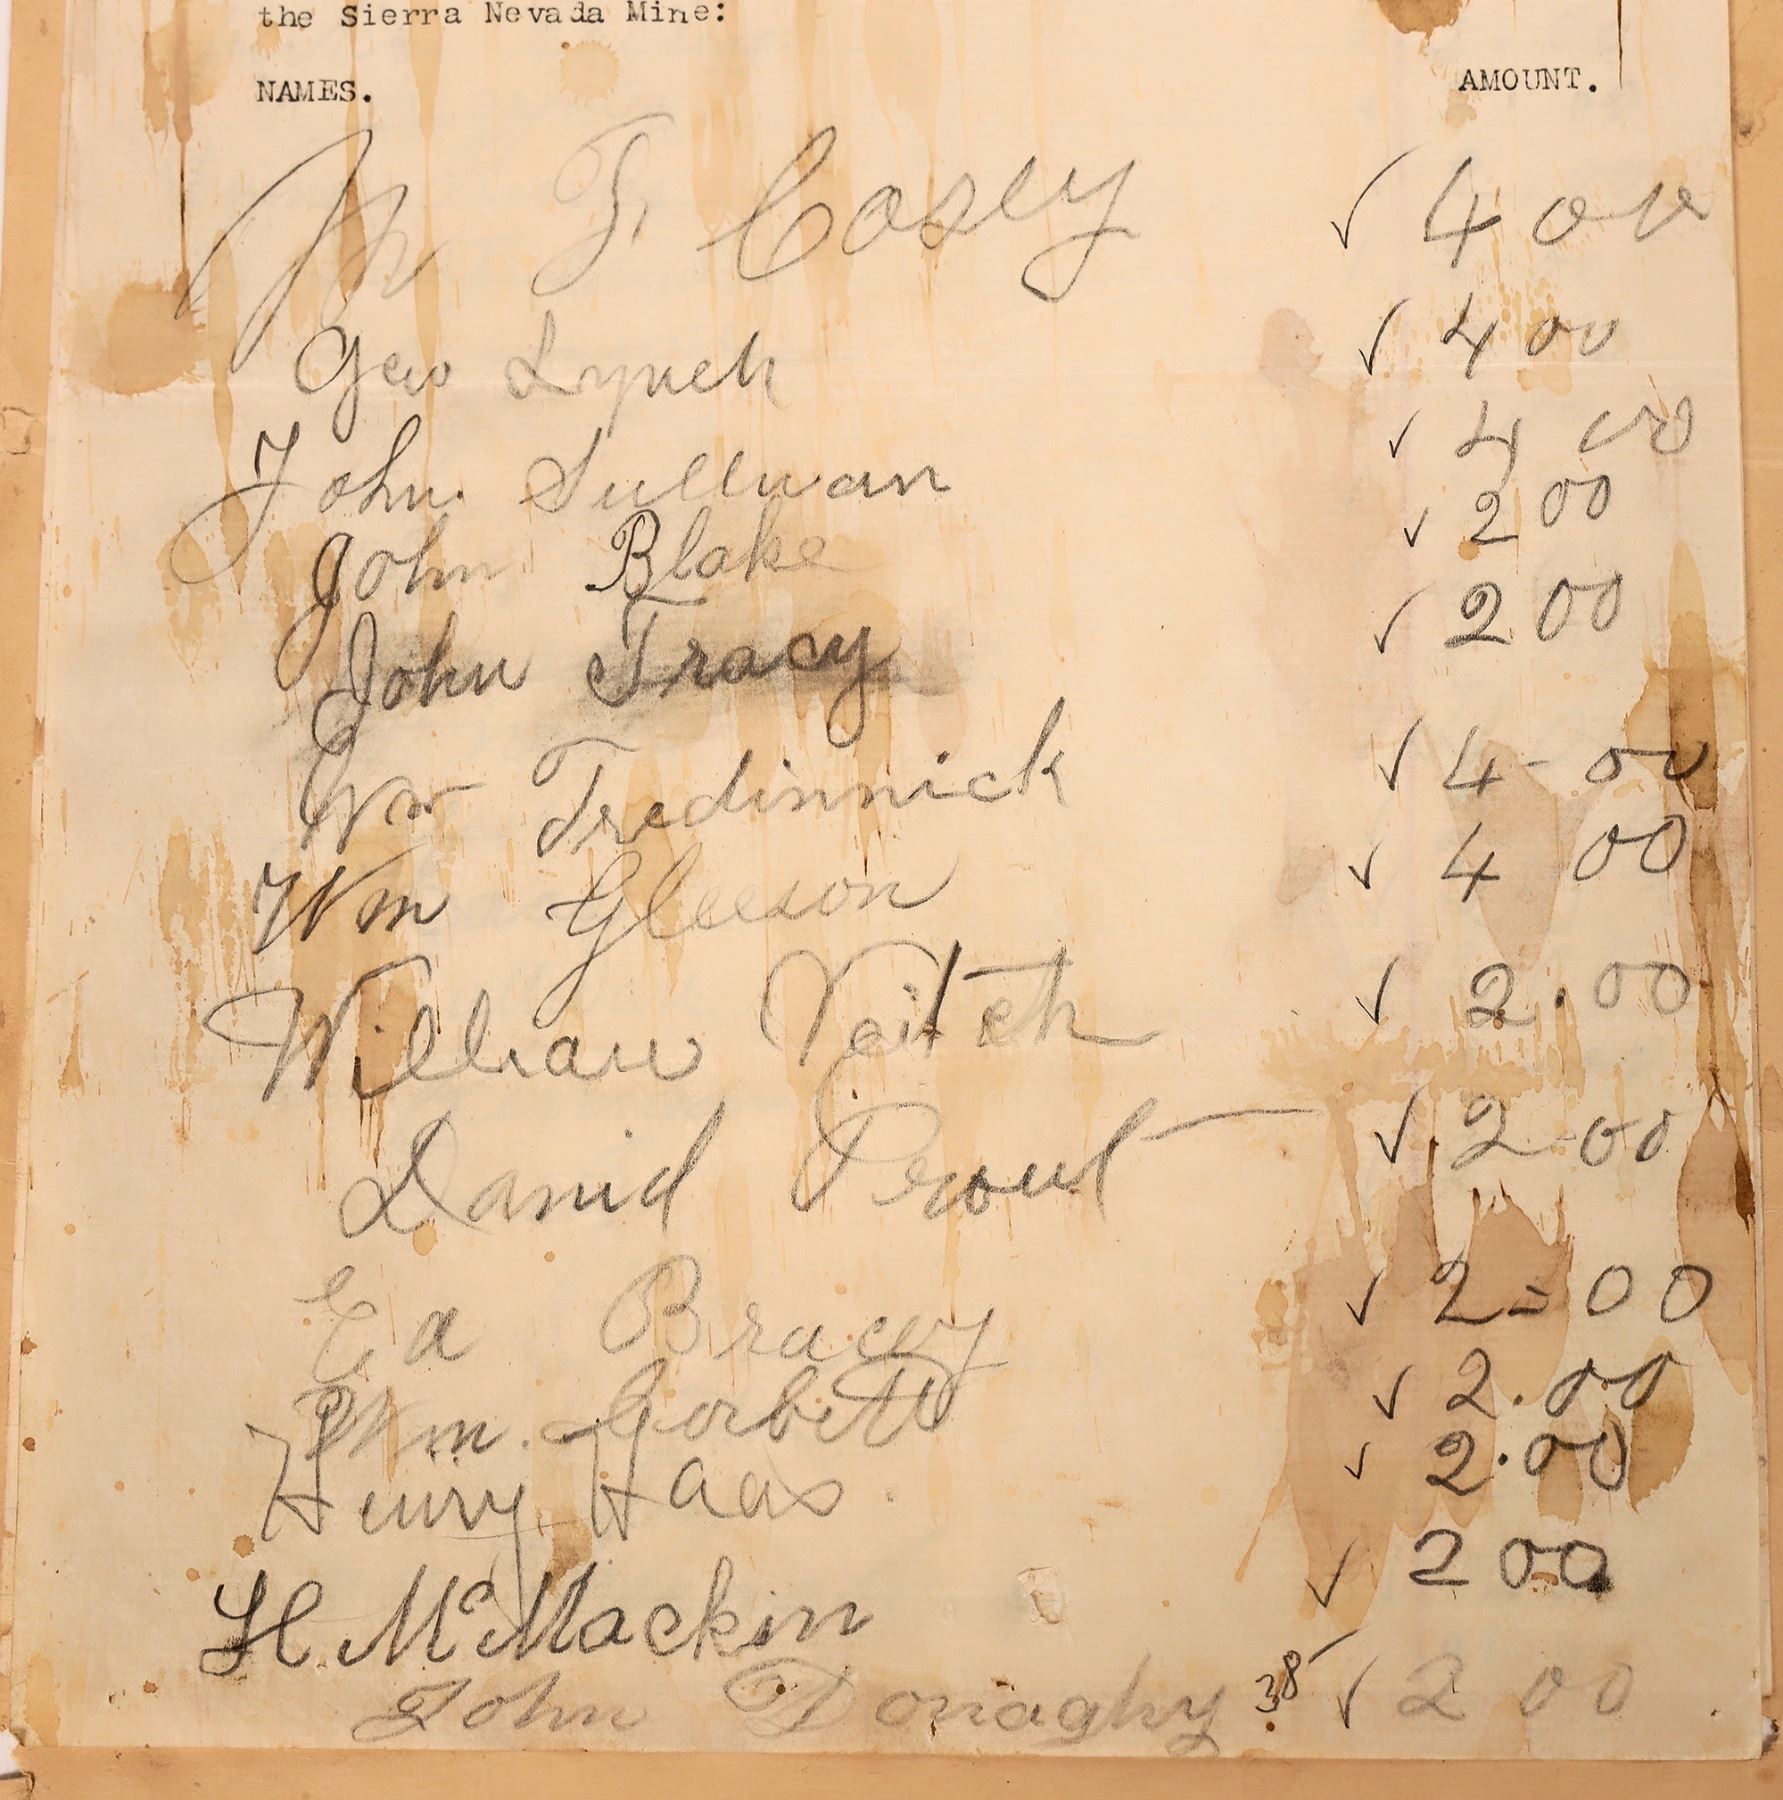 the Sierra Nevada Mine:
NAMES. AMOUNT.
M. F. Casey ✓ 4 00
Geo Lynch ✓ 4 00
John Sullivan ✓ 4 00
John Blake ✓ 2 00
John Tracy ✓ 2 00
Wm Tredinnick ✓ 4- 00
Wm Gleeson ✓ 4 00
William Veitch ✓ 2.00
David Prout ✓ 2-00
Ed Bracey ✓ 2=00
Wm. Corbett ✓ 2.00
Henry Haas. ✓ 2.00
H McMackin ✓ 2 00
John Donaghy 38 ✓ 2 00